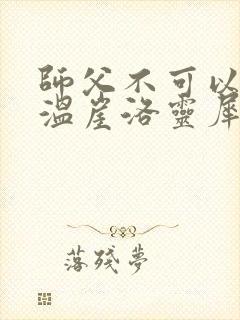 師父不可以
溫崖洛靈犀
落殘夢